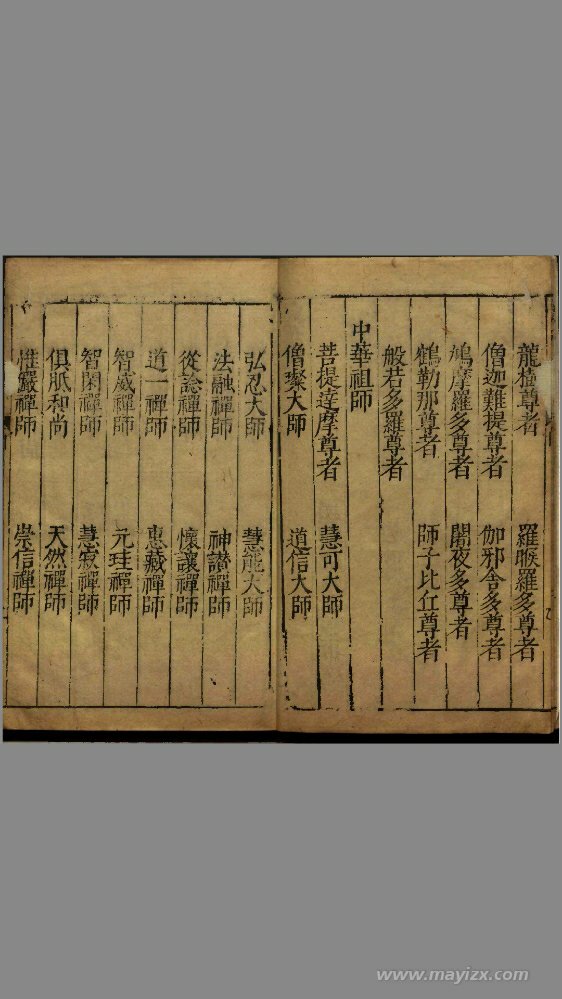 龍樹尊者　羅睺羅多尊者
僧迦難提尊者　伽邪舍多尊者
鳩摩羅多尊者　闍夜多尊者
鶴勒那尊者　師子比丘尊者
般若多羅尊者
中華祖師
菩提達摩尊者　慧可大師
僧璨大師　道信大師
弘忍大師　慧能大師
法融禪師　神讃禪師
從諗禪師　懷讓禪師
道一禪師　惠藏禪師
智威禪師　元珪禪師
智閑禪師　慧寂禪師
俱胝和尚　天然禪師
惟儼禪師　崇信禪師
www.mayizx.com